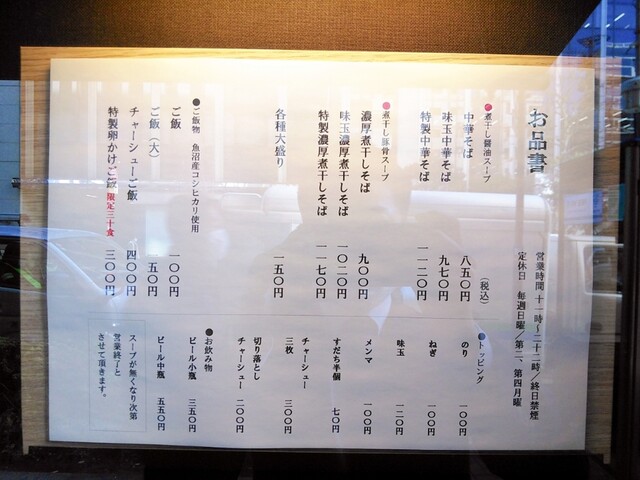 お品書
営業時間 十一時～二十二時／終日禁煙
定休日 毎週日曜／第二、第四月曜
●煮干し醤油スープ
(税込)
中華そば 八五〇円
味玉中華そば 九七〇円
特製中華そば 一一二〇円
●煮干し豚骨スープ
濃厚煮干しそば 九〇〇円
味玉濃厚煮干しそば 一〇二〇円
特製濃厚煮干しそば 一一七〇円
各種大盛り 一五〇円
●ご飯物 魚沼産コシヒカリ使用
ご飯 一〇〇円
ご飯(大) 一五〇円
チャーシューご飯 四〇〇円
特製卵かけご飯 限定三十食 三〇〇円
●トッピング
のり 一〇〇円
ねぎ 一〇〇円
味玉 一二〇円
メンマ 一〇〇円
すだち半個 七〇円
チャーシュー
三枚 三〇〇円
切り落とし
チャーシュー 二〇〇円
●お飲み物
ビール小瓶 三五〇円
ビール中瓶 五五〇円
スープが無くなり次第
営業終了と
させて頂きます。